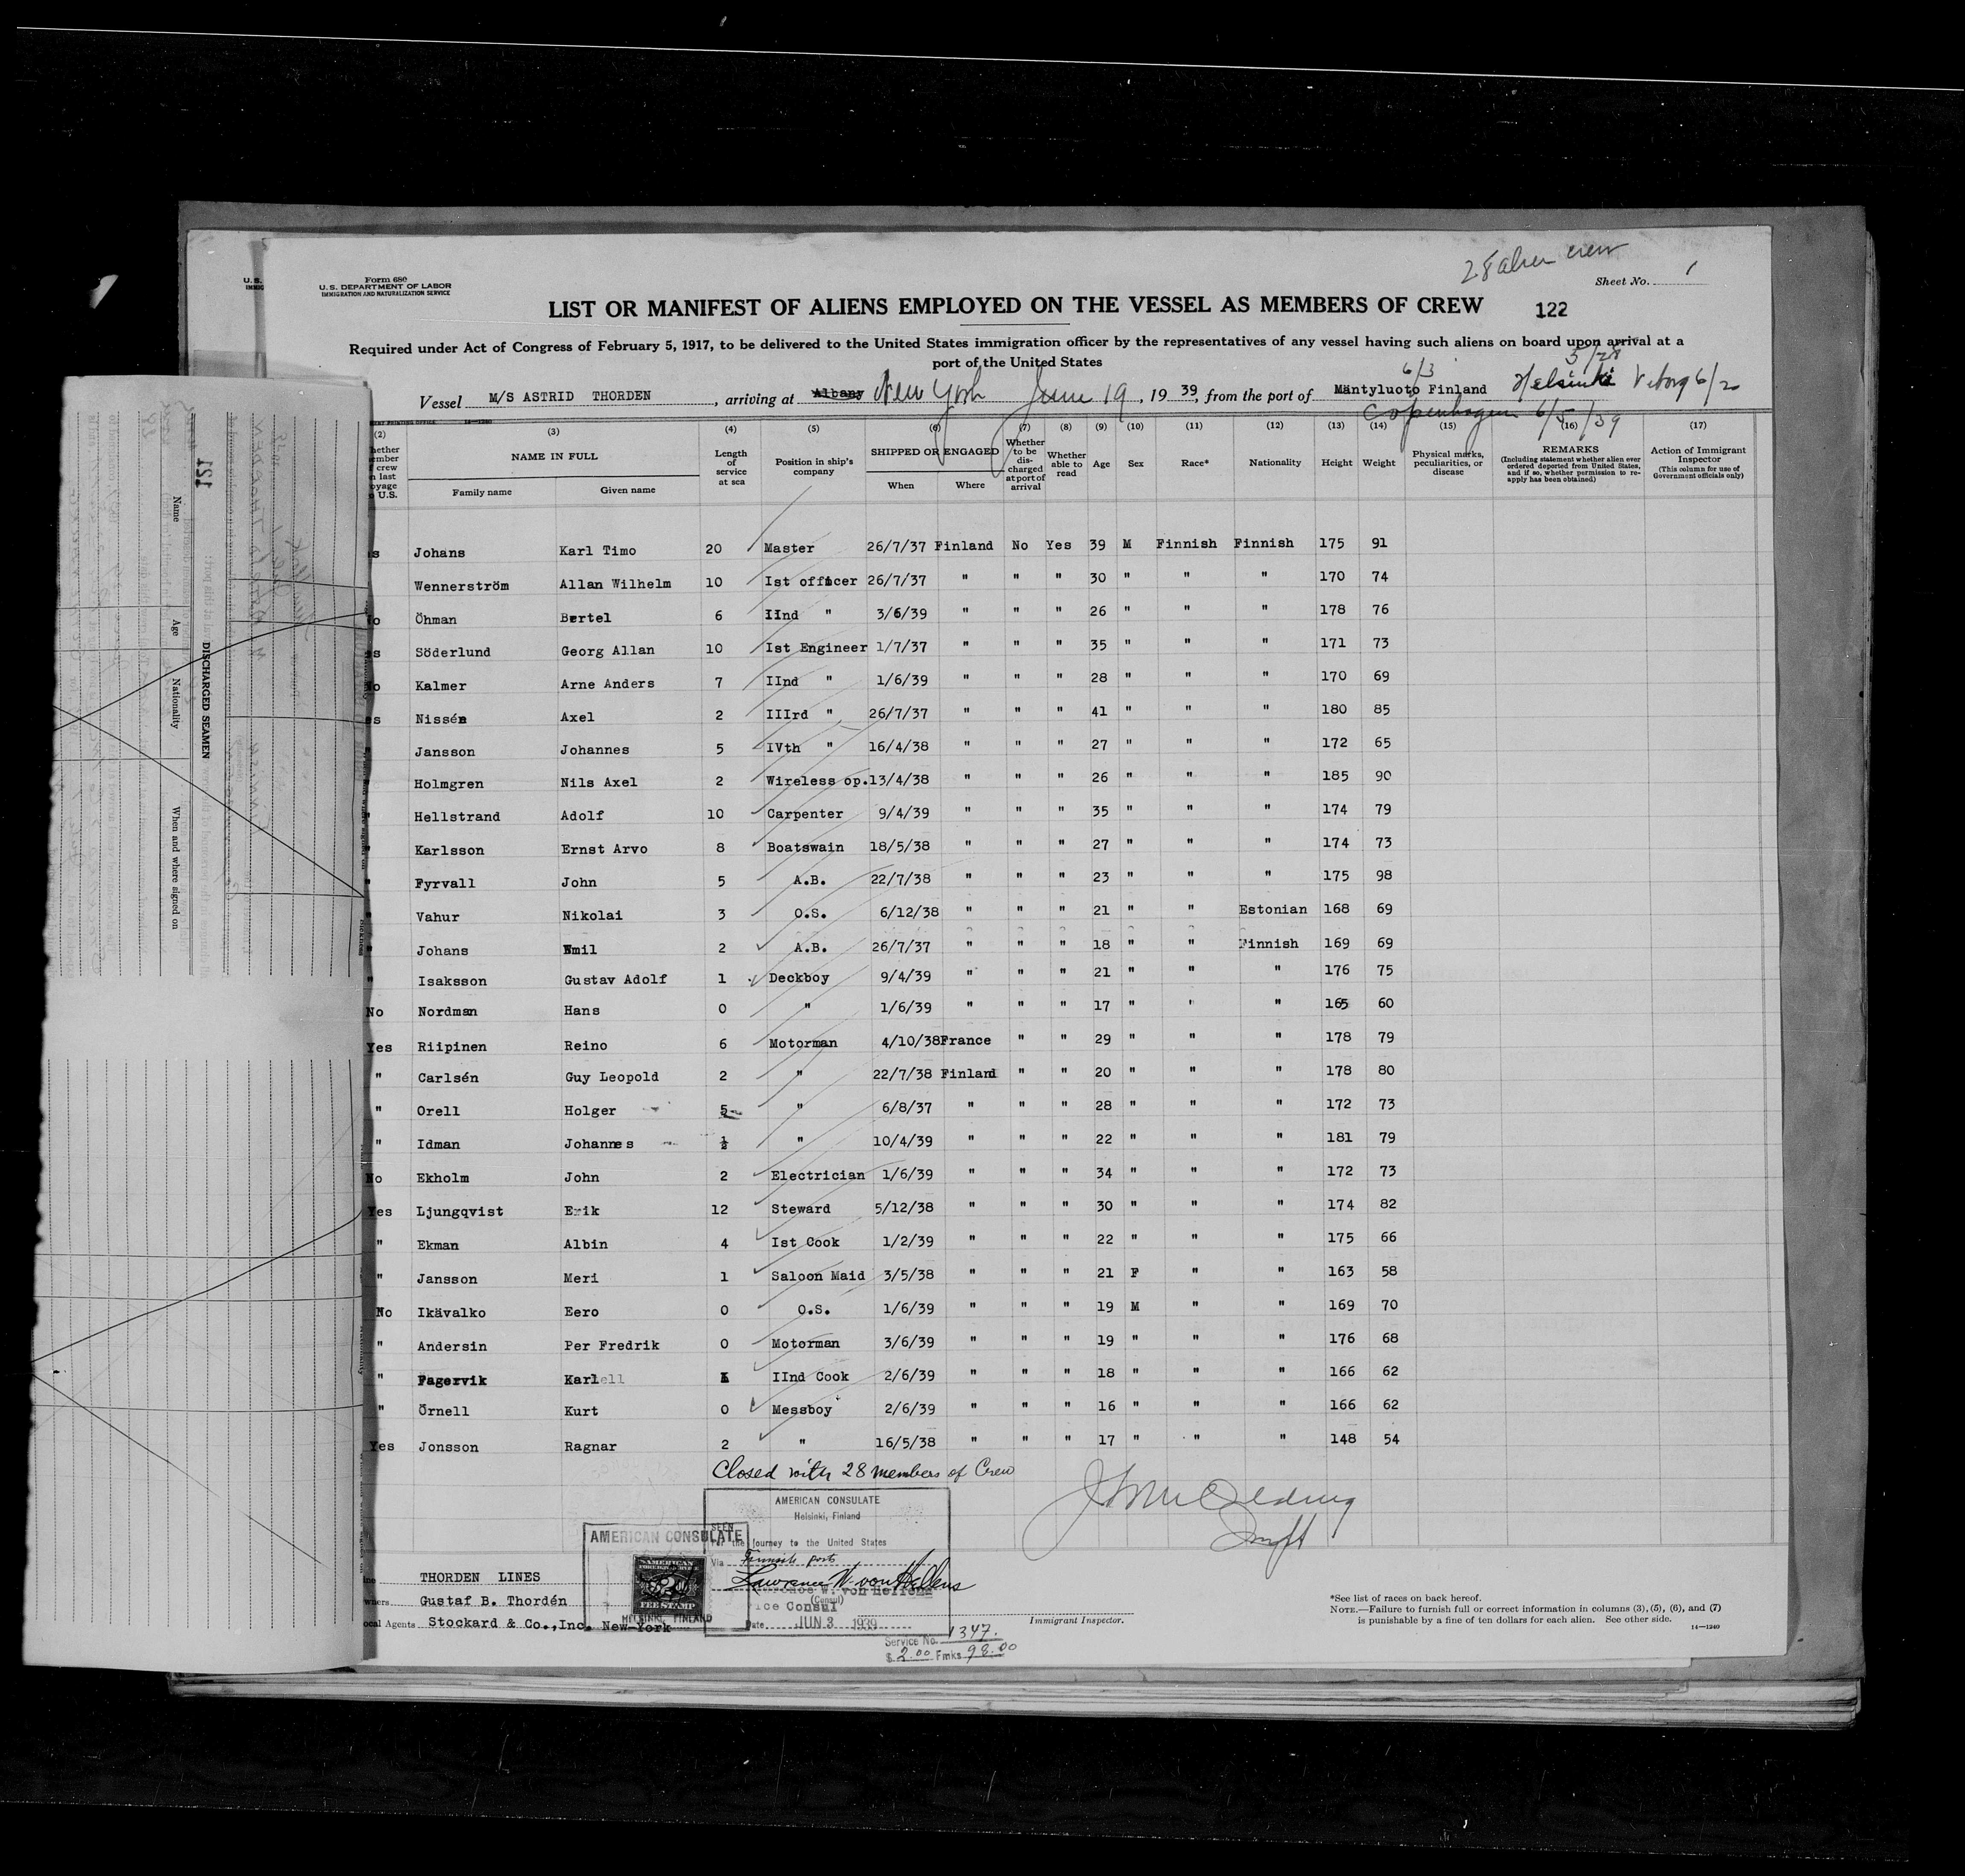 28 alien crew
Form 680
U.S. DEPARTMENT OF LABOR
IMMIGRATION AND NATURALIZATION SERVICE
Sheet No. 1
LIST OR MANIFEST OF ALIENS EMPLOYED ON THE VESSEL AS MEMBERS OF CREW 122
Required under Act of Congress of February 5, 1917, to be delivered to the United States immigration officer by the representatives of any vessel having such aliens on board upon arrival at a
port of the United States
6/3 5/28
Vessel M/S ASTRID THORDEN, arriving at Albany New York June 19, 1939, from the port of Mäntyluoto Finland Helsinki Viborg 6/20
Copenhagen 6/5/39
(2) (3) (4) (5) (6) (7) (8) (9) (10) (11) (12) (13) (14) (15) (16) (17)
NAME IN FULL Length of service at sea Position in ship's company SHIPPED OR ENGAGED Whether to be discharged at port of arrival Whether able to read Age Sex Race* Nationality Height Weight Physical marks, peculiarities, or disease REMARKS (Including statement whether alien ever ordered deported from United States, and if so, whether permission to reapply has been obtained) Action of Immigrant Inspector (This column for use of Government officials only)
Family name Given name When Where
s Johans Karl Timo 20 Master 26/7/37 Finland No Yes 39 M Finnish Finnish 175 91
Wennerström Allan Wilhelm 10 Ist officer 26/7/37 " " " 30 " " " 170 74
o Öhman Bertel 6 IInd " 3/6/39 " " " 26 " " " 178 76
s Söderlund Georg Allan 10 Ist Engineer 1/7/37 " " " 35 " " " 171 73
o Kalmer Arne Anders 7 IInd " 1/6/39 " " " 28 " " " 170 69
s Nissén Axel 2 IIIrd " 26/7/37 " " " 41 " " " 180 85
" Jansson Johannes 5 IVth " 16/4/38 " " " 27 " " " 172 65
" Holmgren Nils Axel 2 Wireless op. 13/4/38 " " " 26 " " " 185 90
" Hellstrand Adolf 10 Carpenter 9/4/39 " " " 35 " " " 174 79
" Karlsson Ernst Arvo 8 Boatswain 18/5/38 " " " 27 " " " 174 73
" Fyrvall John 5 A.B. 22/7/38 " " " 23 " " " 175 98
" Vahur Nikolai 3 O.S. 6/12/38 " " " 21 " " Estonian 168 69
" Johans Emil 2 A.B. 26/7/37 " " " 18 " " Finnish 169 69
" Isaksson Gustav Adolf 1 Deckboy 9/4/39 " " " 21 " " " 176 75
No Nordman Hans 0 " 1/6/39 " " " 17 " " " 165 60
Yes Riipinen Reino 6 Motorman 4/10/38 France " " 29 " " " 178 79
" Carlsén Guy Leopold 2 " 22/7/38 Finland " " 20 " " " 178 80
" Orell Holger 5 " 6/8/37 " " " 28 " " " 172 73
" Idman Johannes ½ " 10/4/39 " " " 22 " " " 181 79
No Ekholm John 2 Electrician 1/6/39 " " " 34 " " " 172 73
Yes Ljungqvist Erik 12 Steward 5/12/38 " " " 30 " " " 174 82
" Ekman Albin 4 Ist Cook 1/2/39 " " " 22 " " " 175 66
" Jansson Meri 1 Saloon Maid 3/5/38 " " " 21 F " " 163 58
No Ikävalko Eero 0 O.S. 1/6/39 " " " 19 M " " 169 70
" Andersin Per Fredrik 0 Motorman 3/6/39 " " " 19 " " " 176 68
" Fagervik Karl IInd Cook 2/6/39 " " " 18 " " " 166 62
" Örnell Kurt 0 Messboy 2/6/39 " " " 16 " " " 166 62
Yes Jonsson Ragnar 2 " 16/5/38 " " " 17 " " " 148 54
Closed with 28 members of Crew
AMERICAN CONSULATE
Helsinki, Finland
SEEN
For the journey to the United States
Via
Lawrence W. von Hellens
Vice Consul
(Consul)
Date JUN 3 1939
AMERICAN CONSULATE
AMERICAN
FEE STAMP
HELSINKI, FINLAND
Service No. 1347.
$ 2.00 Fmks 98.00
THORDEN LINES
Gustaf B. Thordén
ocal Agents Stockard & Co., Inc. New-York
Immigrant Inspector.
*See list of races on back hereof.
NOTE.—Failure to furnish full or correct information in columns (3), (5), (6), and (7)
is punishable by a fine of ten dollars for each alien. See other side.
14—1240
121
DISCHARGED SEAMEN
Name
Age
Nationality
When and where signed on